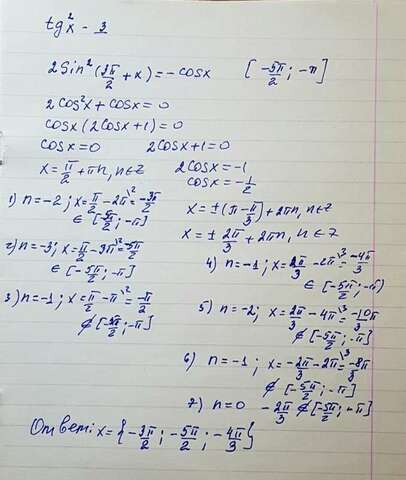 tg²x - 3
2Sin²(3π/2 + x) = - cosx [-5π/2; -π]
2cos²x + cosx = 0
cosx(2cosx + 1) = 0
cosx = 0 2cosx + 1 = 0
x = π/2 + πn, n∈Z 2cosx = -1
cosx = -1/2
1) n = -2; x = π/2 - 2π\² = -3π/2
∈ [-5π/2; -π]
2) n = -3; x = π/2 - 3π\² = -5π/2
∈ [-5π/2; -π]
3) n = -1; x = π/2 - π\² = -π/2
∉ [-5π/2; -π]
x = ±(π - π/3) + 2πn, n∈Z
x = ± 2π/3 + 2πn, n∈Z
4) n = -1; x = 2π/3 - 2π\³ = -4π/3
∈ [-5π/2; -π]
5) n = -2; x = 2π/3 - 4π\³ = -10π/3
∉ [-5π/2; -π]
6) n = -1; x = -2π/3 - 2π\³ = -8π/3
∉ [-5π/2; -π]
7) n = 0 -2π/3 ∉ [-5π/2; -π]
Ответ: x = {-3π/2; -5π/2; -4π/3}